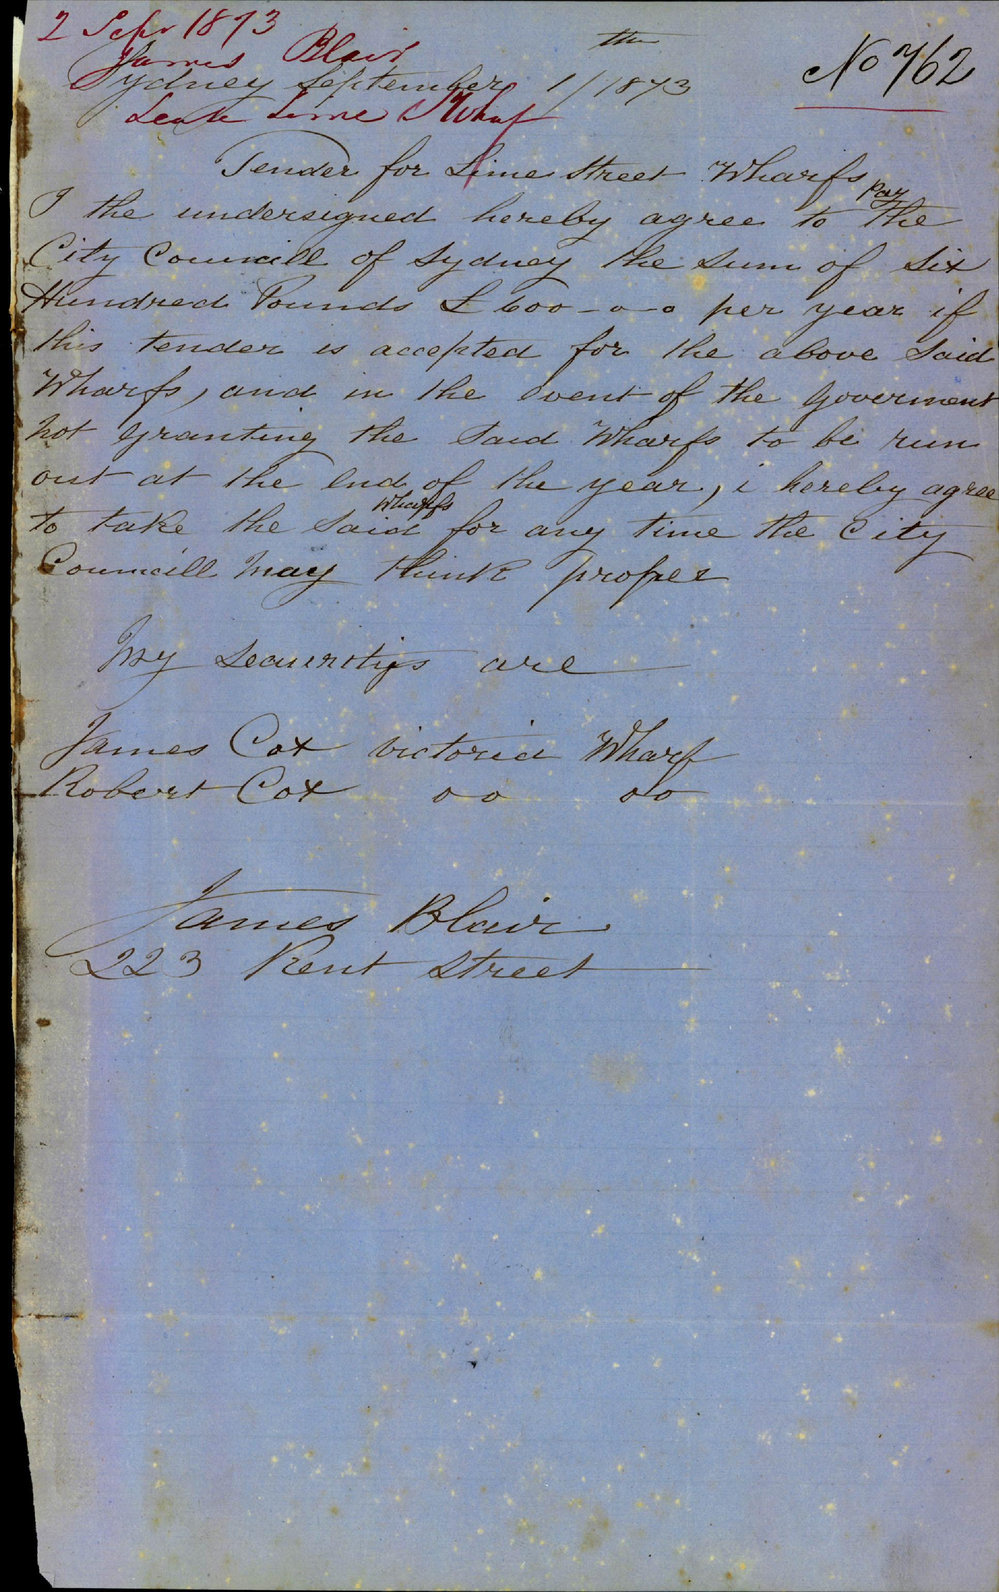 2 Sepr 1873
James Blair
No 762
Sydney September 1th/1873
Lime St Wharf
Tender for Lime Street Wharfs
I the undersigned hereby agree to pay the
City Councill of Sydney the sum of Six
Hundred Pounds £600-0-0 per year if
this tender is accepted for the above Said
Wharfs, and in the event of the Goverment
not granting the Said Wharfs to be run
out at the end of the year, i hereby agree
to take the Said Wharfs for any time the City
Councill may think proper
My Securitys are
James Cox Victoria Wharf
Robert Cox do do
James Blair
223 Kent Street